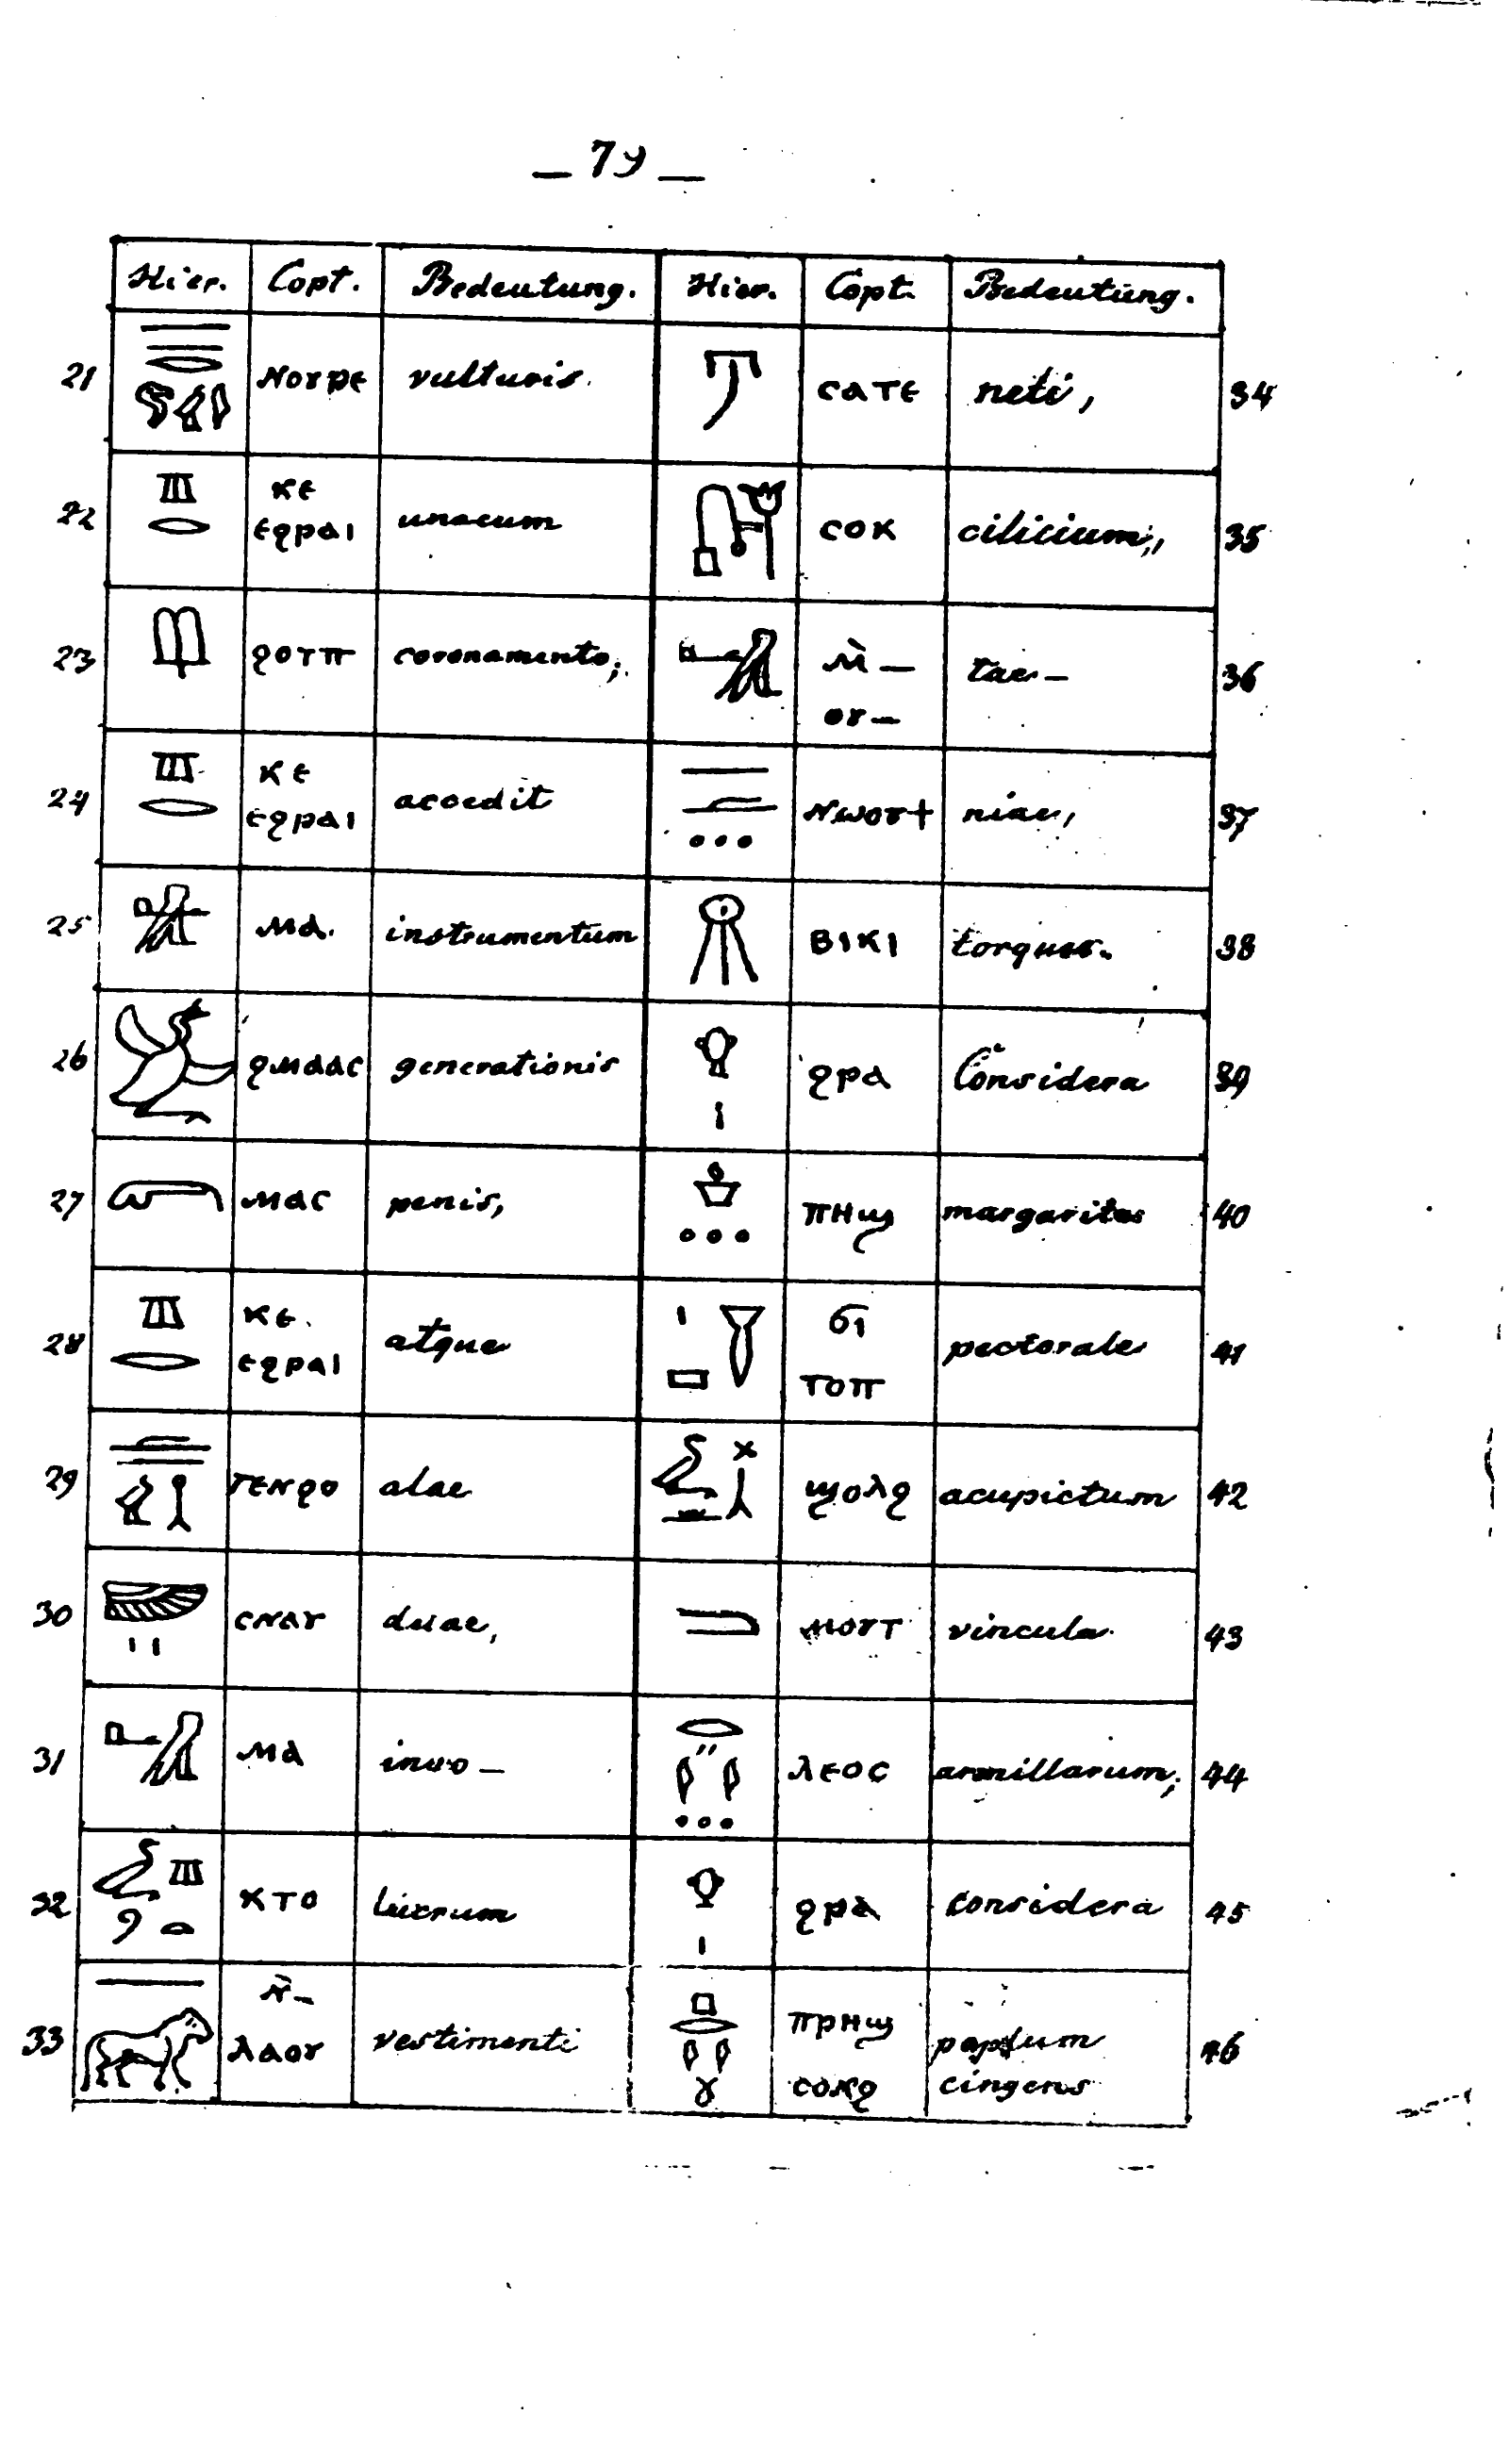 — 79 —
Hier. Copt. Bedeutung. Hier. Copt. Bedeutung.
21 ⲛⲟⲩⲣⲉ vulturis. ⲥⲁⲧⲉ neti, 34
22 ⲕⲉ ⲉϩⲣⲁⲓ unacum ⲥⲟⲕ cilicium, 35
23 ϩⲟⲧⲡ coronamento; ⲙ̀ — ⲟⲩ — tae — 36
24 ⲕⲉ ⲉϩⲣⲁⲓ accedit ⲛⲱⲟⲩϯ niae, 37
25 ⲙⲁ. instrumentum ⲃⲓⲕⲓ torques. 38
26 ϩⲙⲁⲁⲥ generationis ϩⲣⲁ Considera 39
27 ⲙⲁⲥ penis, ⲡⲏϣ margaritas 40
28 ⲕⲉ. ⲉϩⲣⲁⲓ atque ϭⲓ ⲧⲟⲡ pectorale 41
29 ⲧⲉⲛϩⲟ alae ϣⲟⲗϩ acupictum 42
30 ⲥⲛⲁⲩ duae, ⲙⲟⲩⲧ vincula 43
31 ⲙⲁ invo — ⲗⲉⲟⲥ armillarum; 44
32 ⲕⲧⲟ ϩⲣⲁ considera 45
33 ⲛ̀ — ⲗⲁⲟⲩ vestimenti ⲡⲣⲏϣ ⲥⲟⲕϩ cingens 46